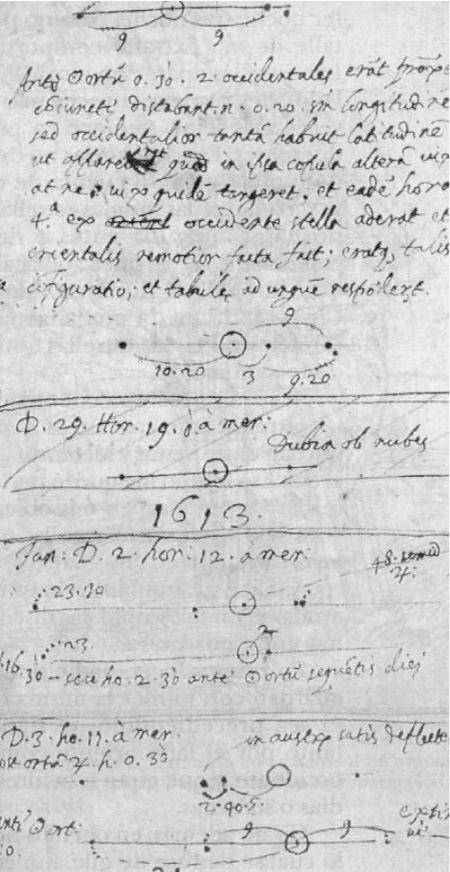 9 9
Ante ☉ ortũ 0. 30. 2. occidentales erãt prope
cõiuncti distabant n. 0.20 in longitudine
sed occidentalior tantã habuit latitudinẽ
ut in ipsa copula alterã vix
at ne vix quidẽ tangeret, et eadẽ hora
4.ª ex occidente stella aderat et
orientalis remotior facta fuit; eratq; talis
cõfiguratio; et tabulę ad unguẽ respõdent.
9
10.20 3 9.20
D. 29. Hor. 19. à mer:
Dubia ob nubes
1613.
Jan: D. 2. hor: 12. à mer:
48. semid
♃.
23.30
23.
2
16.30 – seu ho. 2. 30 ante ☉ ortũ sequẽtis diei
D. 3. ho. 11. à mer.
in austrũ satis deflecte
ortũ ♃. h. 0. 30
2. 40.
ortũ 9 9